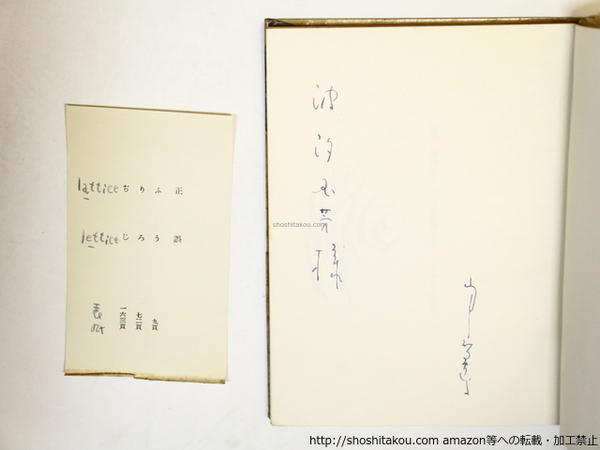 正 ふ り ぢ lattice
誤 う ろ じ lettice
九頁 七二頁 一六三頁 表紙
波汐國芳様
shoshitakou.com
http://shoshitakou.com amazon等への転載・加工禁止